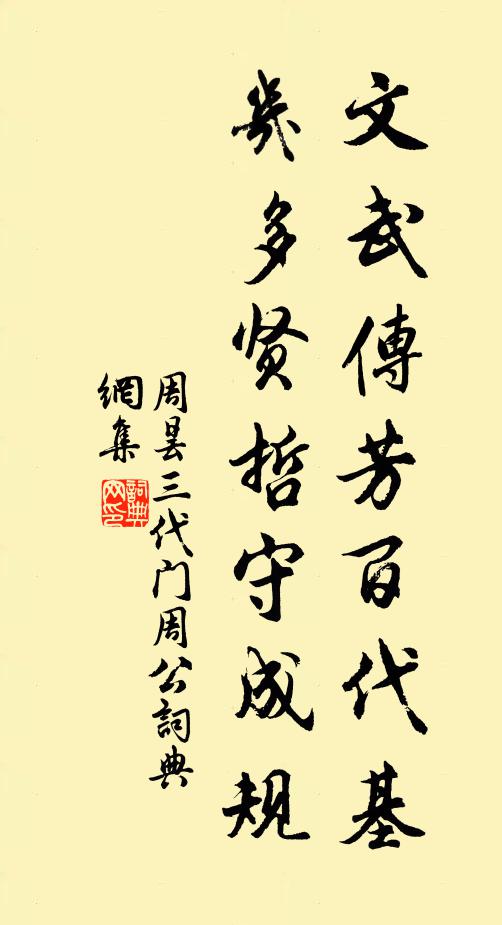 文武傳芳百代基
几多贤哲守成规
周昙三代门周公詞典
網集
詞典
网印